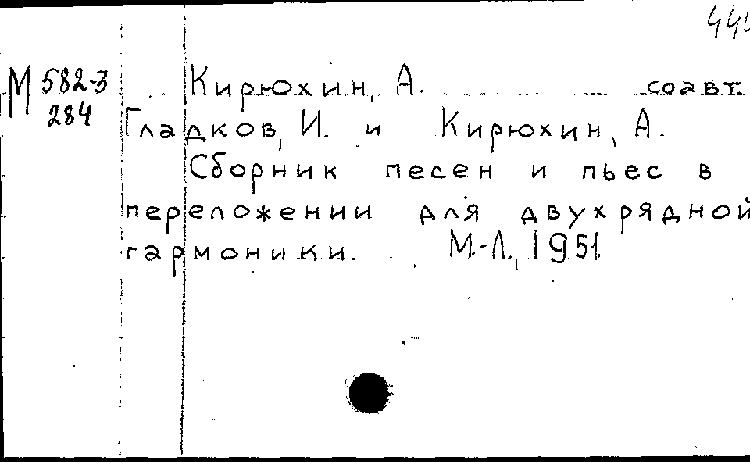 М 582-3
284
Кирюхин, А. соавт.
Гладков, И. и Кирюхин, А.
Сборник песен и пьес в
переложении для двухрядной
гармоники. М.-Л., 1951